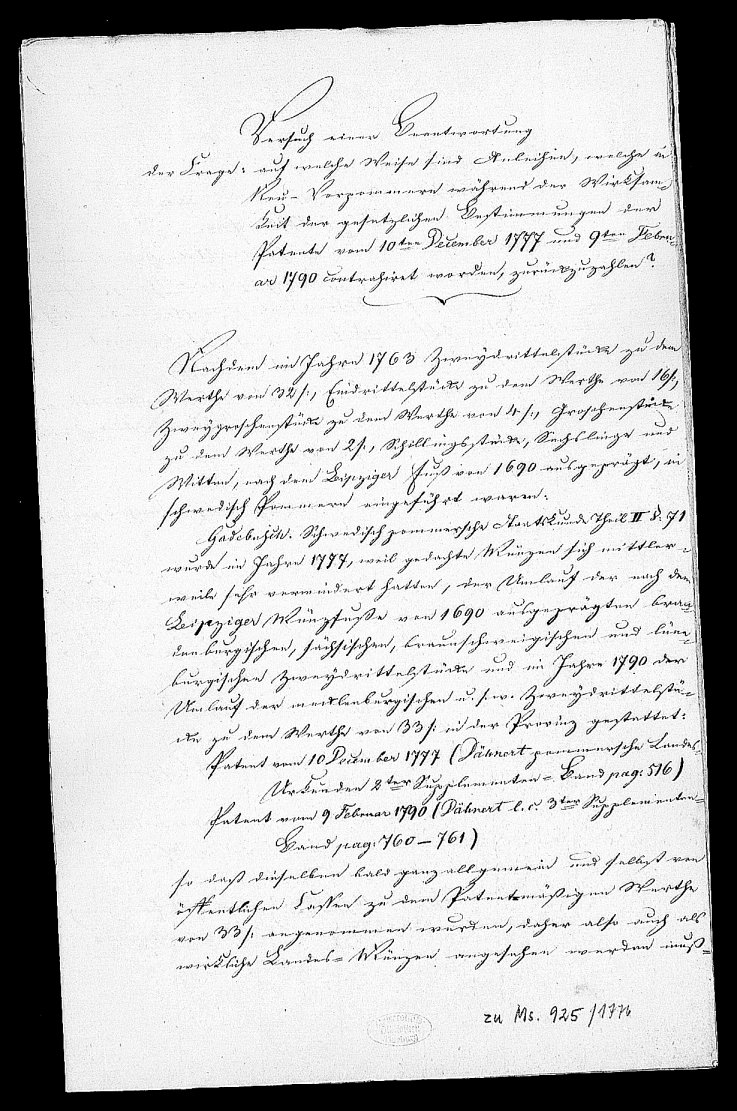 Versuch einer Beantwortung
der Frage: auf welche Weise sind Anleihen, welche in
Neu-Vorpommern während der Wirksam-
keit der gesetzlichen Bestimmungen der
Patente vom 10ten December 1777 und 9ten Febru-
ar 1790 contrahiret worden, zurückzuzahlen?
Nachdem im Jahre 1763 Zweydrittelstücke zu dem
Werthe von 32 s:, Eindrittelstücke zu dem Werthe von 16 s:,
Zweygroschenstücke zu dem Werthe von 4 s:, Groschenstücke
zu dem Werthe von 2 s:, Schillingsstücke, Sechslinge und
Witten, nach dem Leipziger Fuß von 1690 ausgeprägt, in
schwedisch Pommern eingeführt waren:
Gadebusch. Schwedischpommersche Staatskunde Theil II S: 71
wurde im Jahre 1777, weil gedachte Münzen sich mittler-
weile sehr vermindert hatten, der Umlauf der nach dem
Leipziger Münzfuße von 1690 ausgeprägten bran-
denburgischen, sächsischen, braunschweigischen und lüne-
burgischen Zweydrittelstücke und im Jahre 1790 der
Umlauf der mecklenburgischen u. s. w. Zweydrittelstü-
cke zu dem Werthe von 33 s: in der Provinz gestattet:
Patent vom 10 December 1777 (Dähnert pommersche Landes-
Urkunden 2ter Supplementen-Band pag: 516)
Patent vom 9 Februar 1790 (Dähnert l. c. 3ter Supplementen-
Band pag: 760 — 761)
so daß dieselben bald ganz allgemein und selbst von
öffentlichen Cassen zu dem Patentmäßigen Werthe
von 33 s: angenommen wurden, daher also auch als
wirkliche Landes-Münzen angesehen werden muß-
zu Ms. 925 /1776